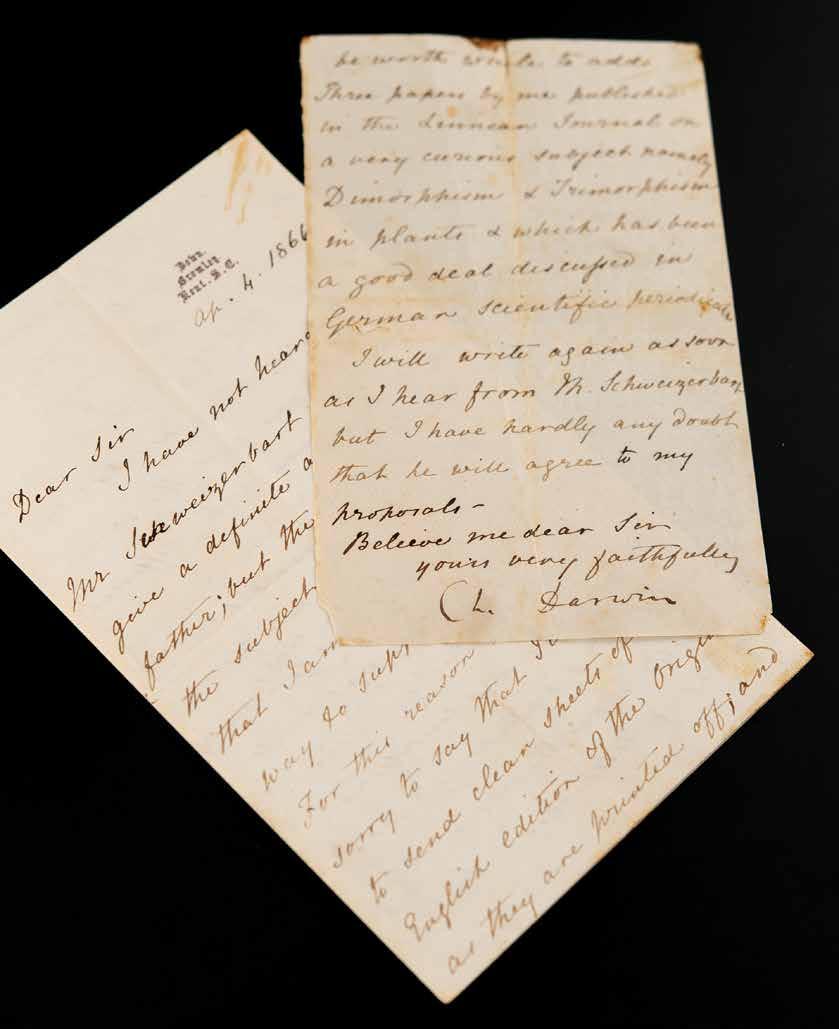 Down.
Bromley.
Kent. S.E.
Ap. 4. 1866
Dear Sir
I have not heard
Mr Schweizerbart
give a definite a
father; but the
the subject
that I am
way to supp
For this reason
sorry to say that I
to send clean sheets of
English edition of the Origi
as they are printed off; and
be worth while to add
Three papers by me published
in the Linnean Journal on
a very curious subject namely
Dimorphism & Trimorphism
in plants & which has been
a good deal discussed in
German scientific periodicals
I will write again as soon
as I hear from M. Schweizerbart
but I have hardly any doubt
that he will agree to my
proposals—
Believe me dear Sir
yours very faithfully
Ch. Darwin